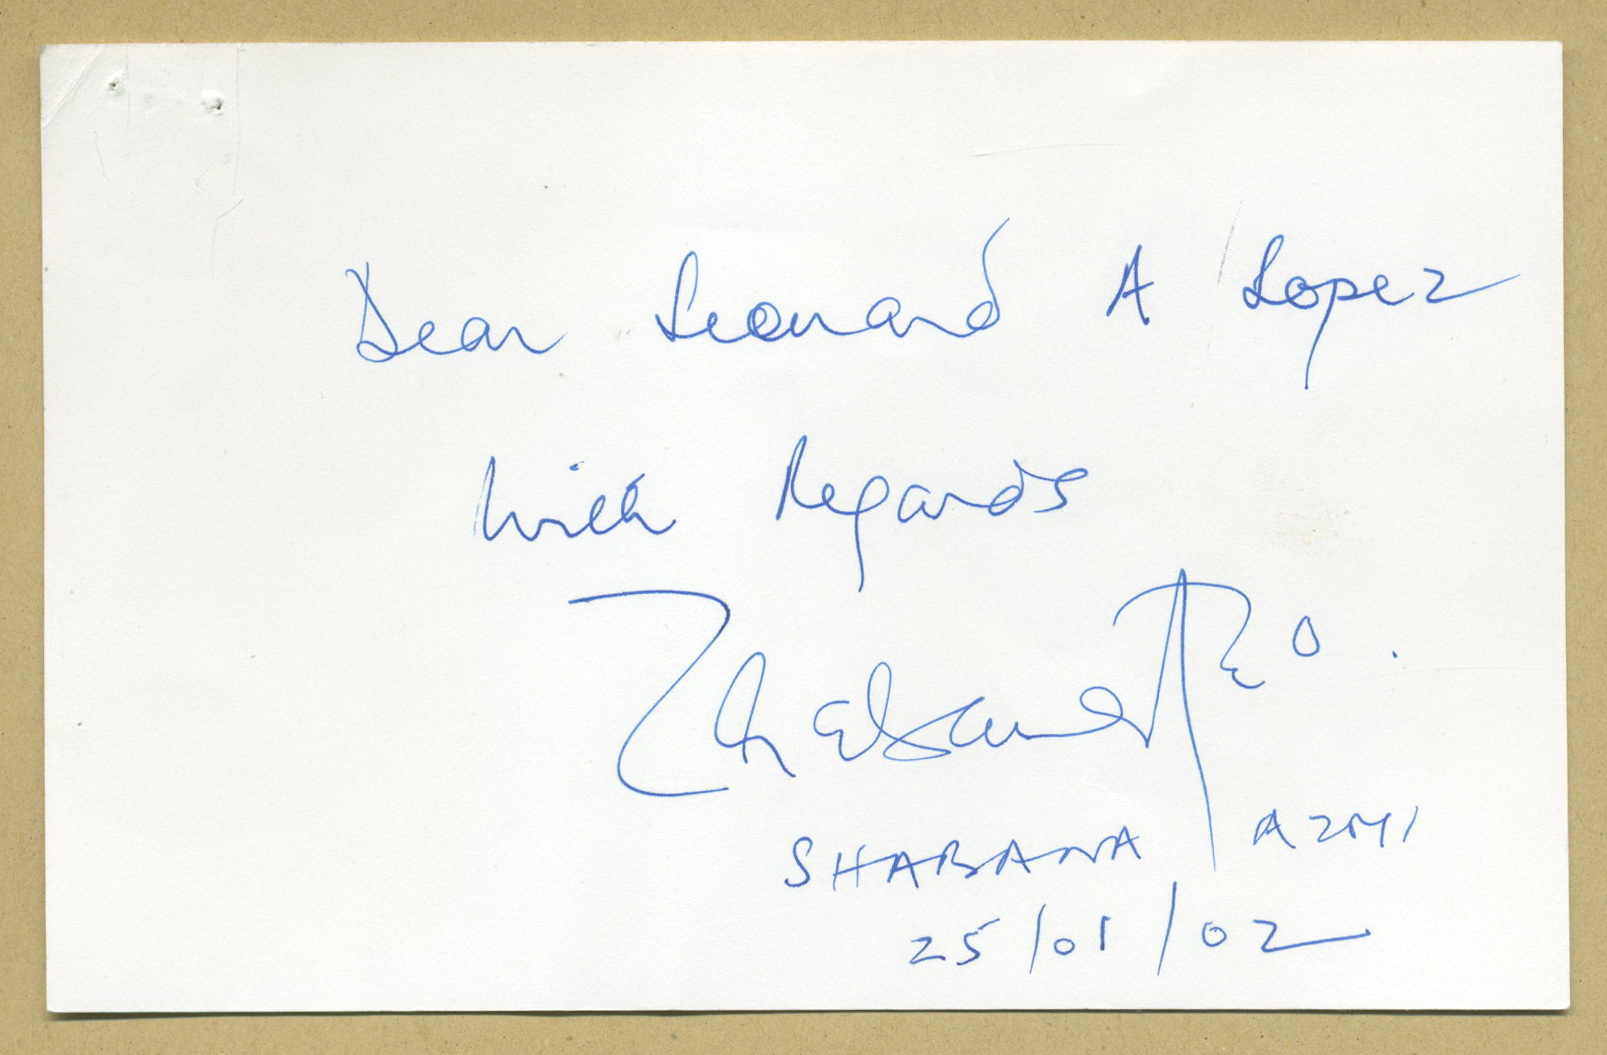 Dear Leonard A Lopez
With Regards
SHABANA AZMI
25/01/02